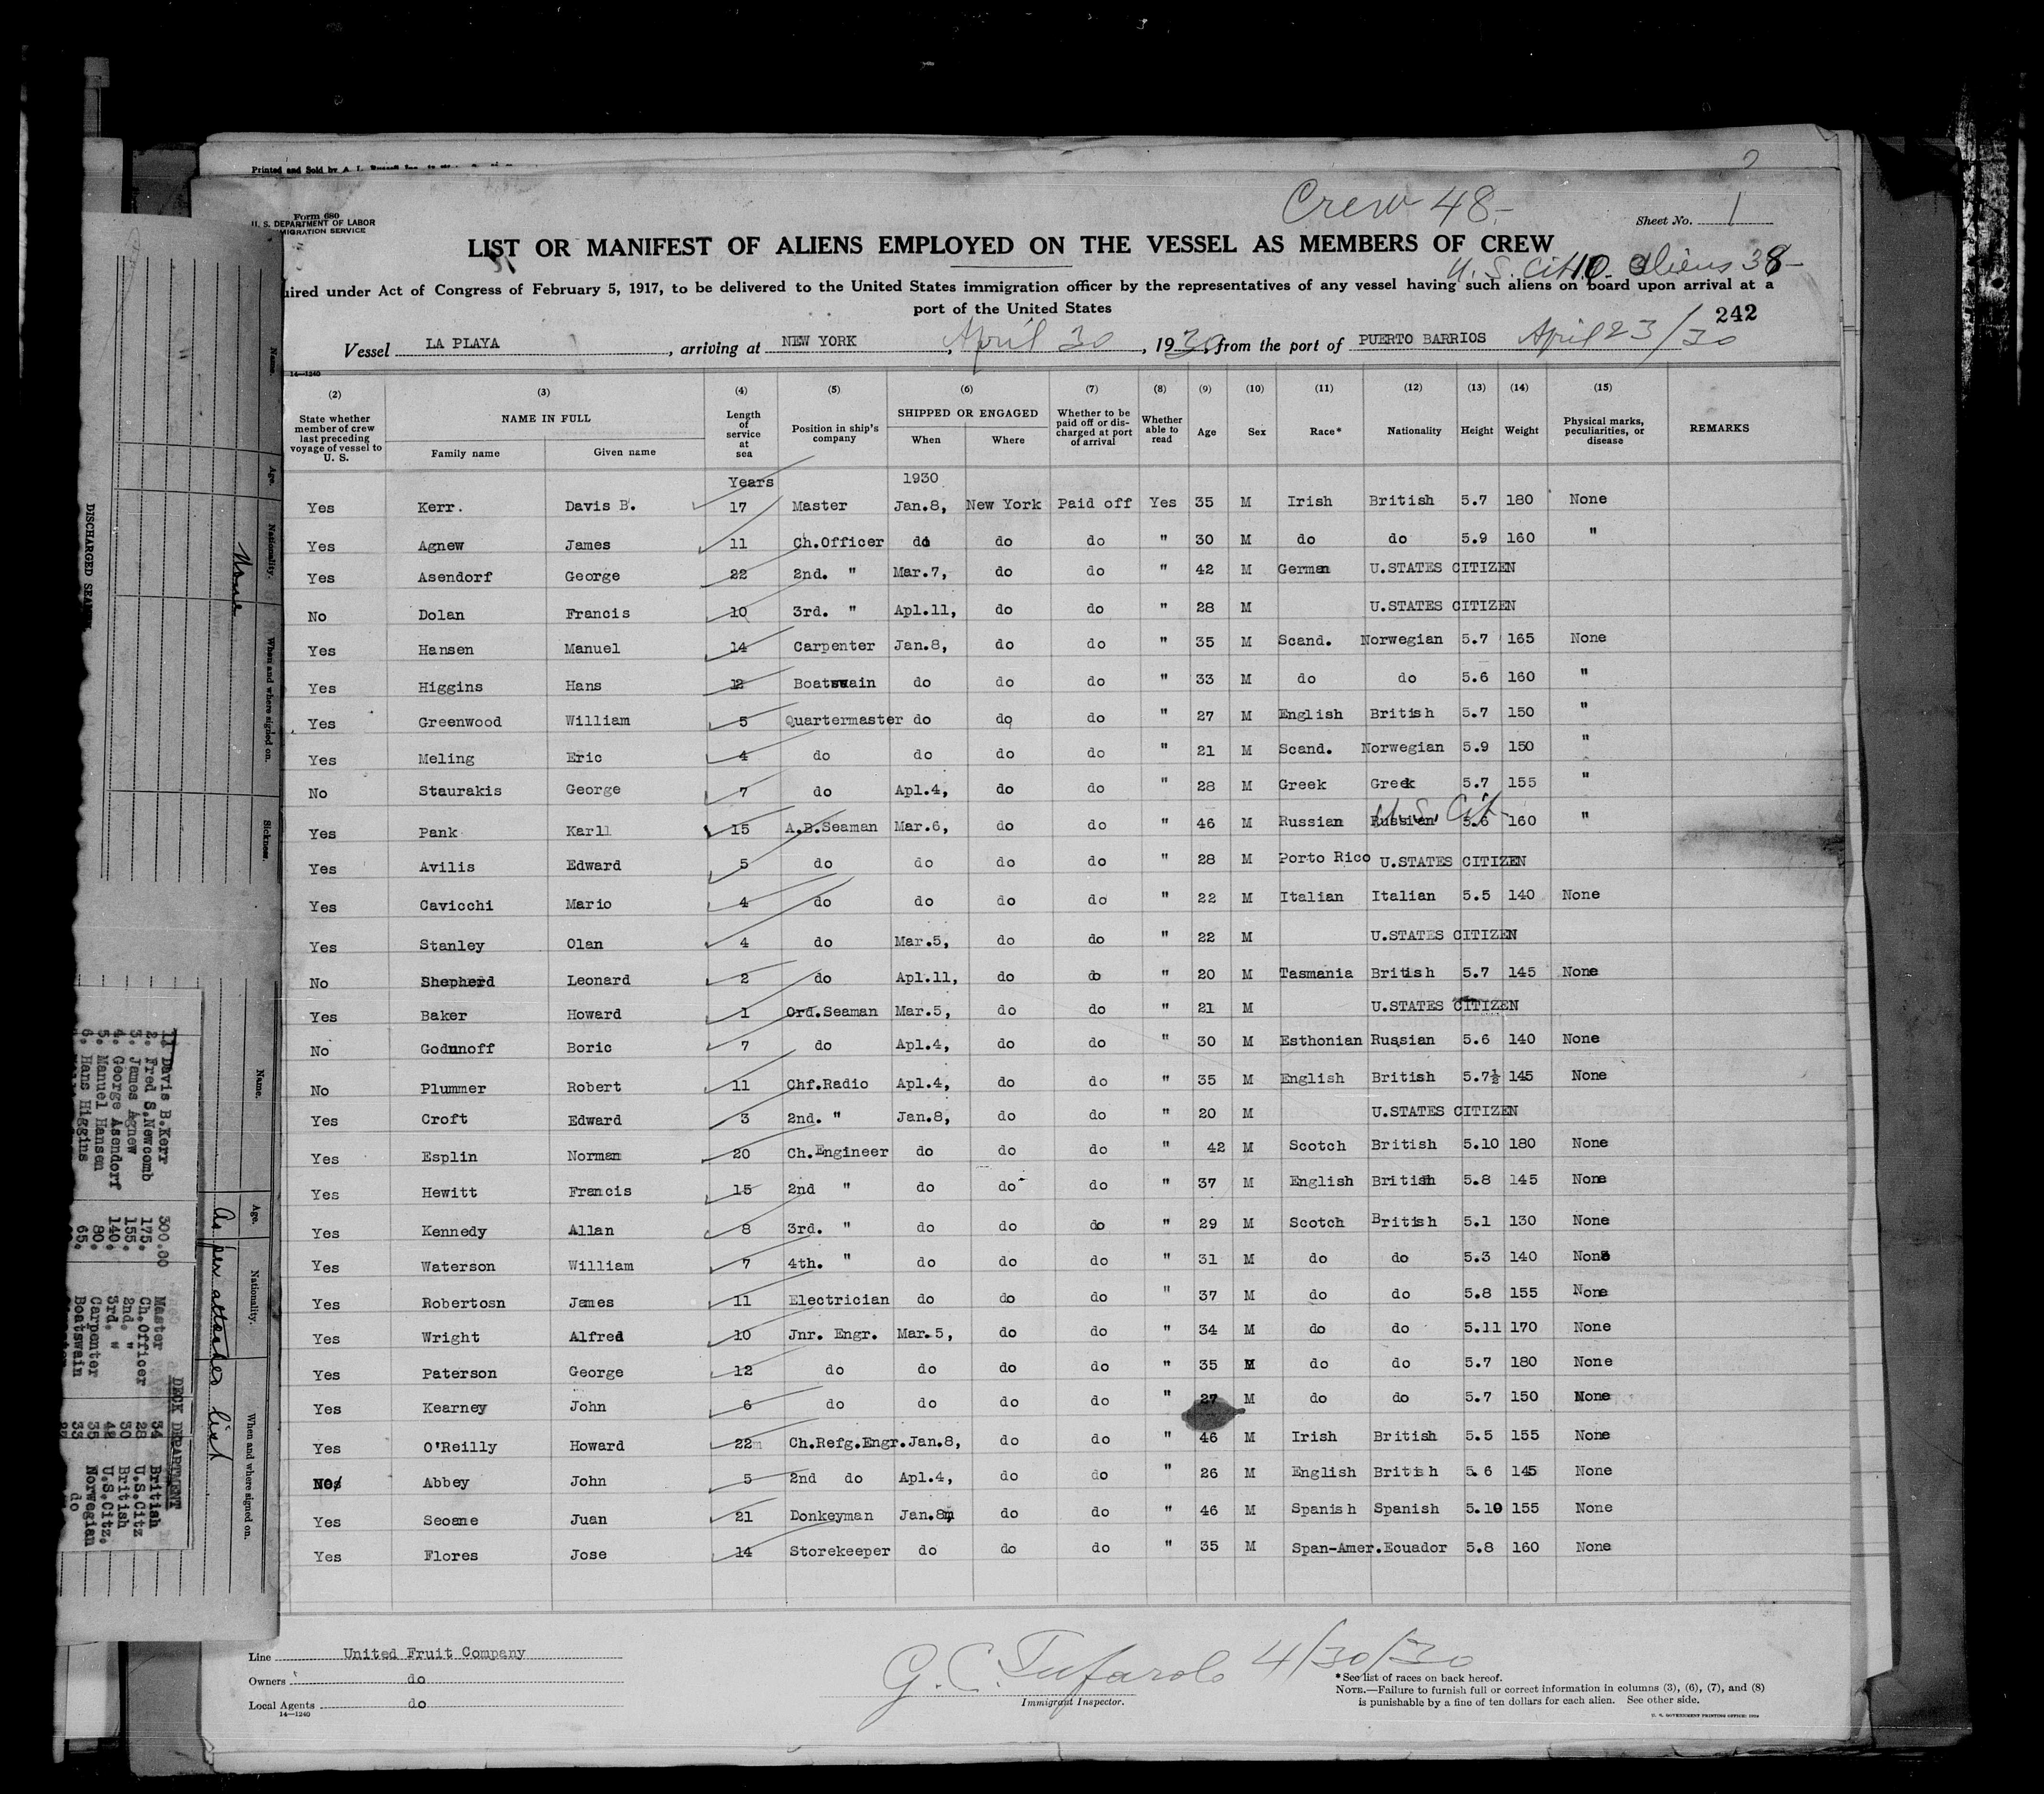 Printed and Sold by A. L.
Form 680
U. S. DEPARTMENT OF LABOR
MIGRATION SERVICE
Crew 48-
Sheet No. 1
LIST OR MANIFEST OF ALIENS EMPLOYED ON THE VESSEL AS MEMBERS OF CREW
U. S. Cit 10. Aliens 38-
uired under Act of Congress of February 5, 1917, to be delivered to the United States immigration officer by the representatives of any vessel having such aliens on board upon arrival at a
port of the United States
242
Vessel LA PLAYA, arriving at NEW YORK, April 30, 1930, from the port of PUERTO BARRIOS April 23/30
14—1240
(2) (3) (4) (5) (6) (7) (8) (9) (10) (11) (12) (13) (14) (15)
State whether member of crew last preceding voyage of vessel to U. S. NAME IN FULL Family name Given name Length of service at sea Position in ship's company SHIPPED OR ENGAGED When Where Whether to be paid off or discharged at port of arrival Whether able to read Age Sex Race* Nationality Height Weight Physical marks, peculiarities, or disease REMARKS
Years 1930
Yes Kerr. Davis B. 17 Master Jan.8, New York Paid off Yes 35 M Irish British 5.7 180 None
Yes Agnew James 11 Ch.Officer do do do " 30 M do do 5.9 160 "
Yes Asendorf George 22 2nd. " Mar.7, do do " 42 M German U.STATES CITIZEN
No Dolan Francis 10 3rd. " Apl.11, do do " 28 M U.STATES CITIZEN
Yes Hansen Manuel 14 Carpenter Jan.8, do do " 35 M Scand. Norwegian 5.7 165 None
Yes Higgins Hans 12 Boatswain do do do " 33 M do do 5.6 160 "
Yes Greenwood William 5 Quartermaster do do do " 27 M English British 5.7 150 "
Yes Meling Eric 4 do do do do " 21 M Scand. Norwegian 5.9 150 "
No Staurakis George 7 do Apl.4, do do " 28 M Greek Greek 5.7 155 "
U.S. Cit
Yes Pank Karll 15 A.B.Seaman Mar.6, do do " 46 M Russian Russian 5.6 160 "
Yes Avilis Edward 5 do do do do " 28 M Porto Rico U.STATES CITIZEN
Yes Cavicchi Mario 4 do do do do " 22 M Italian Italian 5.5 140 None
Yes Stanley Olan 4 do Mar.5, do do " 22 M U.STATES CITIZEN
No Shepherd Leonard 2 do Apl.11, do do " 20 M Tasmania British 5.7 145 None
Yes Baker Howard 1 Ord.Seaman Mar.5, do do " 21 M U.STATES CITIZEN
No Godnnoff Boric 7 do Apl.4, do do " 30 M Esthonian Russian 5.6 140 None
No Plummer Robert 11 Chf.Radio Apl.4, do do " 35 M English British 5.7½ 145 None
Yes Croft Edward 3 2nd. " Jan.8, do do " 20 M U.STATES CITIZEN
Yes Esplin Norman 20 Ch.Engineer do do do " 42 M Scotch British 5.10 180 None
Yes Hewitt Francis 15 2nd " do do do " 37 M English British 5.8 145 None
Yes Kennedy Allan 8 3rd. " do do do " 29 M Scotch British 5.1 130 None
Yes Waterson William 7 4th. " do do do " 31 M do do 5.3 140 None
Yes Robertosn James 11 Electrician do do do " 37 M do do 5.8 155 None
Yes Wright Alfred 10 Jnr. Engr. Mar.5, do do " 34 M do do 5.11 170 None
Yes Paterson George 12 do do do do " 35 M do do 5.7 180 None
Yes Kearney John 6 do do do do " 27 M do do 5.7 150 None
Yes O'Reilly Howard 22 Ch.Refg.Engr. Jan.8, do do " 46 M Irish British 5.5 155 None
No Abbey John 5 2nd do Apl.4, do do " 26 M English British 5.6 145 None
Yes Seoane Juan 21 Donkeyman Jan.8, do do " 46 M Spanish Spanish 5.10 155 None
Yes Flores Jose 14 Storekeeper do do do " 35 M Span-Amer. Ecuador 5.8 160 None
Line United Fruit Company
Owners do
Local Agents do
14—1240
G. C. Tufarolo 4/30/30
Immigrant Inspector.
*See list of races on back hereof.
NOTE.—Failure to furnish full or correct information in columns (3), (6), (7), and (8)
is punishable by a fine of ten dollars for each alien. See other side.
U. S. GOVERNMENT PRINTING OFFICE
Name. Age. Nationality. When and where signed on. Sickness.
None
DISCHARGED SEAMEN
Name. Age. Nationality. When and where signed on.
As per attached list
DECK DEPARTMENT
1. Davis B.Kerr 300.00 Master 34 British
2. Fred S.Newcomb 175. Ch.Officer 28 U.S.Citz
3. James Agnew 155. 2nd. " 30 British
4. George Asendorf 140. 3rd. " 42 U.S.Citz.
5. Manuel Hansen 80. Carpenter 35 Norwegian
6. Hans Higgins 65. Boatswain 33 do